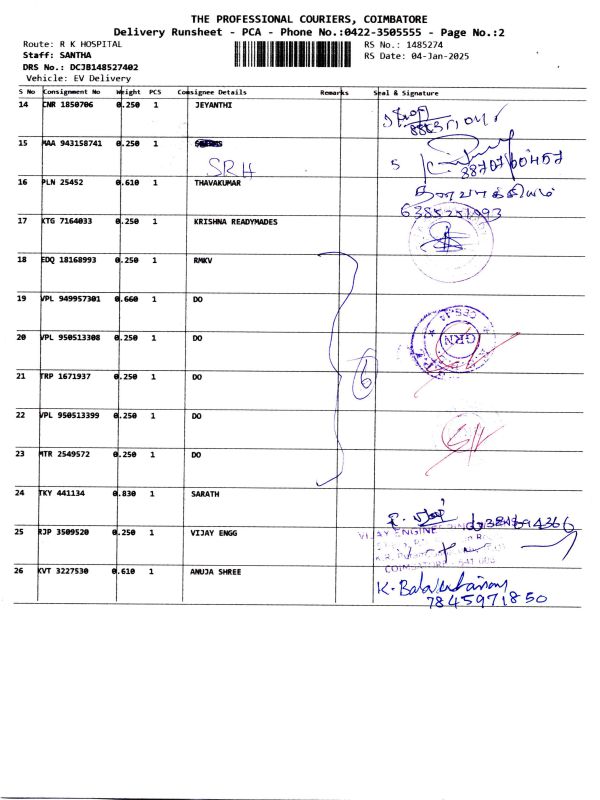 THE PROFESSIONAL COURIERS, COIMBATORE
Delivery Runsheet - PCA - Phone No.:0422-3505555 - Page No.:2
Route: R K HOSPITAL
RS No.: 1485274
Staff: SANTHA
RS Date: 04-Jan-2025
DRS No.: DCJB148527402
Vehicle: EV Delivery
S No Consignment No Weight PCS Consignee Details Remarks Seal & Signature
14 CNR 1850706 0.250 1 JEYANTHI
15 MAA 943158741 0.250 1
SRH
S 8870760457
16 PLN 25452 0.610 1 THAVAKUMAR
6385251993
17 KTG 7164033 0.250 1 KRISHNA READYMADES
18 EDQ 18168993 0.250 1 RMKV
19 VPL 949957301 0.660 1 DO
20 VPL 950513308 0.250 1 DO
GRN
21 TRP 1671937 0.250 1 DO
6
22 VPL 950513399 0.250 1 DO
23 MTR 2549572 0.250 1 DO
24 TKY 441134 0.830 1 SARATH
25 RJP 3509520 0.250 1 VIJAY ENGG
VIJAY ENGINEERING
COIMBATORE
26 KVT 3227530 0.610 1 ANUJA SHREE
7845971850